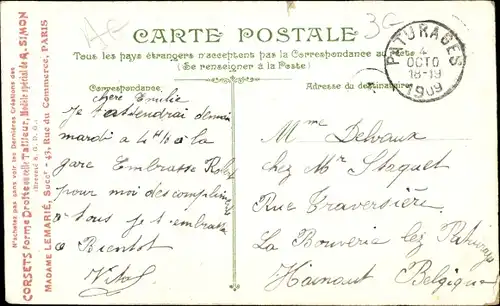 CARTE POSTALE
Tous les pays étrangers n'acceptent pas la Correspondance au recto
(Se renseigner à la Poste)
Correspondance
Adresse du destinataire
PATURAGES
4
OCTO
18-19
1909
Chère Emilie
Je t'attendrai demain
mardi a 4 H ½ à la
gare Embrasse
pour moi des compliments
a tous je t'embrasse
a Bientot
Mme Delvaux
chez Mr Staquet
Rue Traversière
La Bouverie lez Paturages
Hainaut Belgique
N'achetez pas sans voir les Dernières Créations des
CORSETS forme Droite ou celle Tailleur, Modèle spécial de A. SIMON
(Breveté S. G. D. G.)
MADAME LEMARIÉ, Succr - 43, Rue du Commerce, PARIS